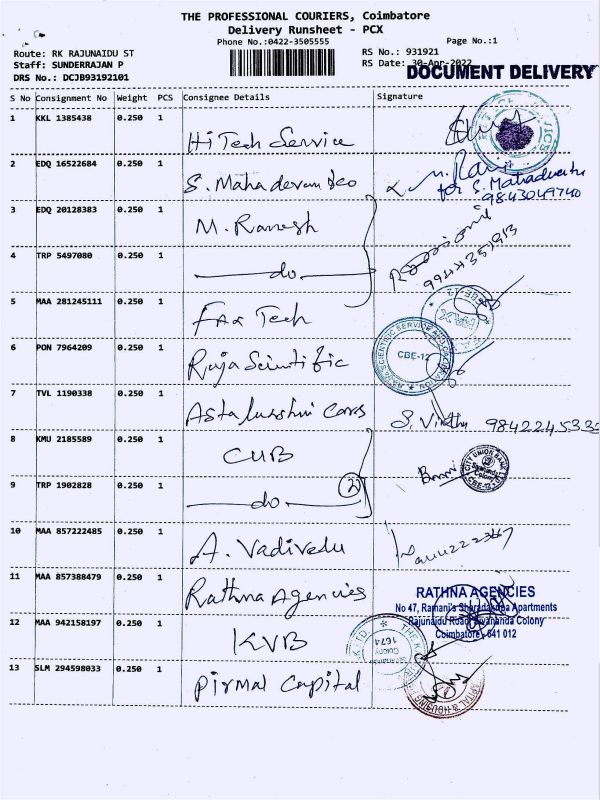 THE PROFESSIONAL COURIERS, Coimbatore
Delivery Runsheet - PCX
Phone No.:0422-3505555
Page No.:1
Route: RK RAJUNAIDU ST
RS No.: 931921
Staff: SUNDERRAJAN P
RS Date: 30-Apr-2022
DRS No.: DCJB93192101
DOCUMENT DELIVERY
S No Consignment No Weight PCS Consignee Details Signature
1 KKL 1385438 0.250 1 HiTech Service
2 EDQ 16522684 0.250 1 S. Mahadevan &co
for S. Mahadevan
9843049740
3 EDQ 20128383 0.250 1 M. Ramesh
4 TRP 5497080 0.250 1 do
5 MAA 281245111 0.250 1 Fax Tech
6 PON 7964209 0.250 1 Raja Scientific
CBE-12
7 TVL 1190338 0.250 1 Astalakshmi Cars
8 KMU 2185589 0.250 1 CUB
CITY UNION BANK
9 TRP 1902828 0.250 1 do (2)
CBE-12
10 MAA 857222485 0.250 1 A. Vadivelu
11 MAA 857388479 0.250 1 Rathna Agencies
RATHNA AGENCIES
No 47, Ramani's Sharadamba Apartments
Rajunaidu Road, Sivananda Colony
Coimbatore - 641 012
12 MAA 942158197 0.250 1 KVB
1674
13 SLM 294598033 0.250 1 Pirmal Capital